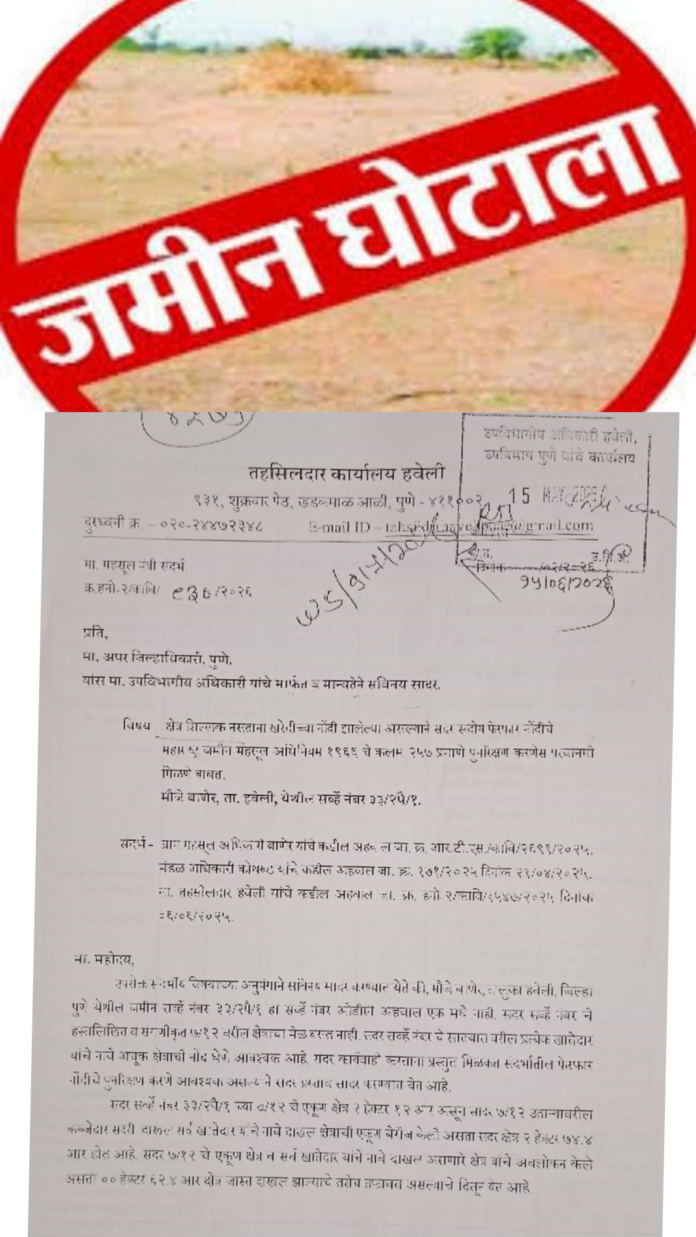 जमीन घोटाला
तहसिलदार कार्यालय हवेली
उपविभागीय अधिकारी हवेली,
उपविभाग पुणे यांचे कार्यालय
९३१, शुक्रवार पेठ, खडकमाळ आळी, पुणे - ४११००२
15 MAY
दुरध्वनी क्र. – ०२०-२४४७२३४८ E-mail ID –
मा. महसूल मंत्री संदर्भ
क्र.हनो-२/कावि/ ९३० /२०२६
प्रति,
मा. अपर जिल्हाधिकारी, पुणे.
यांस मा. उपविभागीय अधिकारी यांचे मार्फत व मान्यतेने सविनय सादर.
विषय - क्षेत्र शिल्लक नसताना खरेदीच्या नोंदी झालेल्या असल्याने सदर सदोष फेरफार नोंदीचे
महाराष्ट्र जमीन महसूल अधिनियम १९६६ चे कलम २५७ प्रमाणे पुनरिक्षण करणेस परवानगी
मिळणे बाबत.
मौजे बाणेर, ता. हवेली, येथील सर्व्हे नंबर ३३/२पै/१.
संदर्भ - ग्राम महसूल अधिकारी बाणेर यांचे कडील अहवाल जा. क्र. आर.टी.एस./कावि/२६९६/२०२५.
मंडळ अधिकारी कोथरुड यांचे कडील अहवाल जा. क्र. १७१/२०२५ दिनांक २१/०४/२०२५.
मा. तहसीलदार हवेली यांचे कडील अहवाल जा. क्र. हनो-२/कावि/१५४७/२०२५ दिनांक
०६/०६/२०२५.
मा. महोदय,
उपरोक्त संदर्भीय विषयाच्या अनुषंगाने सविनय सादर करण्यात येते की, मौजे बाणेर, तालुका हवेली, जिल्हा
पुणे येथील जमीन सर्व्हे नंबर ३३/२पै/१ हा सर्व्हे नंबर ओडीसी अहवाल एक मध्ये नाही. सदर सर्व्हे नंबर चे
हस्तलिखित व संगणीकृत ७/१२ वरील क्षेत्राचा मेळ बसत नाही. सदर सर्व्हे नंबर चे सातबारा वरील प्रत्येक खातेदार
यांचे नावे अचूक क्षेत्राची नोंद घेणे आवश्यक आहे. सदर कार्यवाही करताना प्रस्तुत मिळकत संदर्भातील फेरफार
नोंदीचे पुनरिक्षण करणे आवश्यक असल्याने सदर प्रस्ताव सादर करण्यात येत आहे.
सदर सर्व्हे नंबर ३३/२पै/१ च्या ७/१२ चे एकूण क्षेत्र २ हेक्टर १२ आर असून सादर ७/१२ उताऱ्यावरील
कब्जेदार सदरी दाखल सर्व खातेदार यांचे नावे दाखल क्षेत्राची एकूण बेरीज केली असता सदर क्षेत्र २ हेक्टर ७४.४
आर होत आहे. सदर ७/१२ चे एकूण क्षेत्र व सर्व खातेदार यांचे नावे दाखल असणारे क्षेत्र यांचे अवलोकन केले
असता ०० हेक्टर ६२.४ आर क्षेत्र जास्त दाखल झाल्याचे तसेच तफावत असल्याचे दिसून येत आहे.